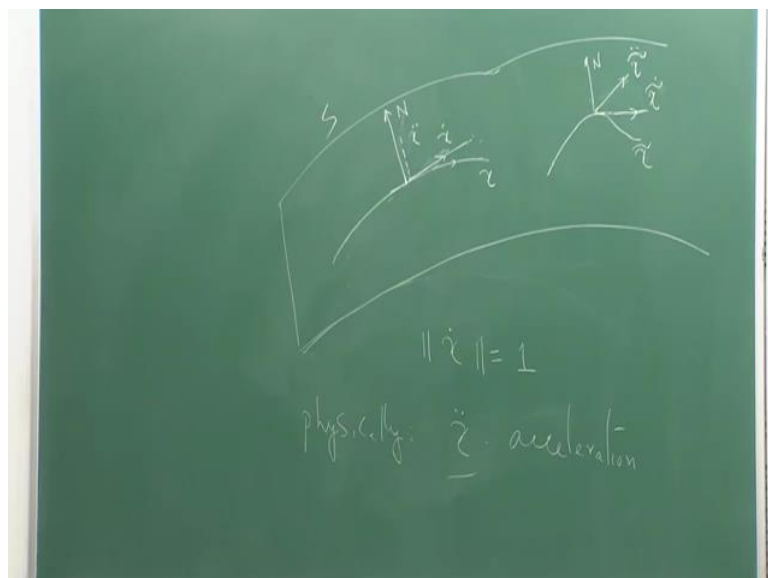 S
N
γ̈
γ̇
γ
N
γ̃̈
γ̃̇
γ̃
|| γ̇ || = 1
physically: γ̈ - acceleration